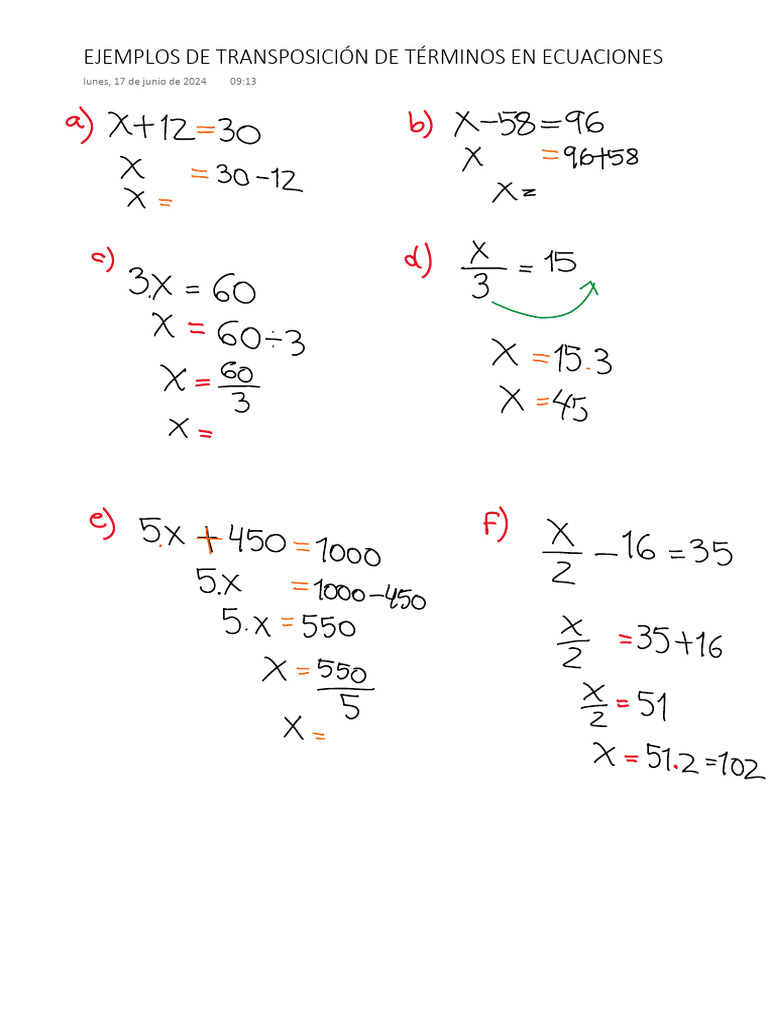 EJEMPLOS DE TRANSPOSICIÓN DE TÉRMINOS EN ECUACIONES
lunes, 17 de junio de 2024 09:13
a) x+12=30
x =30-12
x =
b) x-58=96
x =96+58
x =
c) 3.x = 60
x = 60÷3
x = 60/3
x =
d) x/3 = 15
x =15.3
x =45
e) 5.x + 450 = 1000
5.x =1000-450
5.x = 550
x = 550/5
x =
f) x/2 - 16 = 35
x/2 =35+16
x/2 = 51
x = 51.2 =102